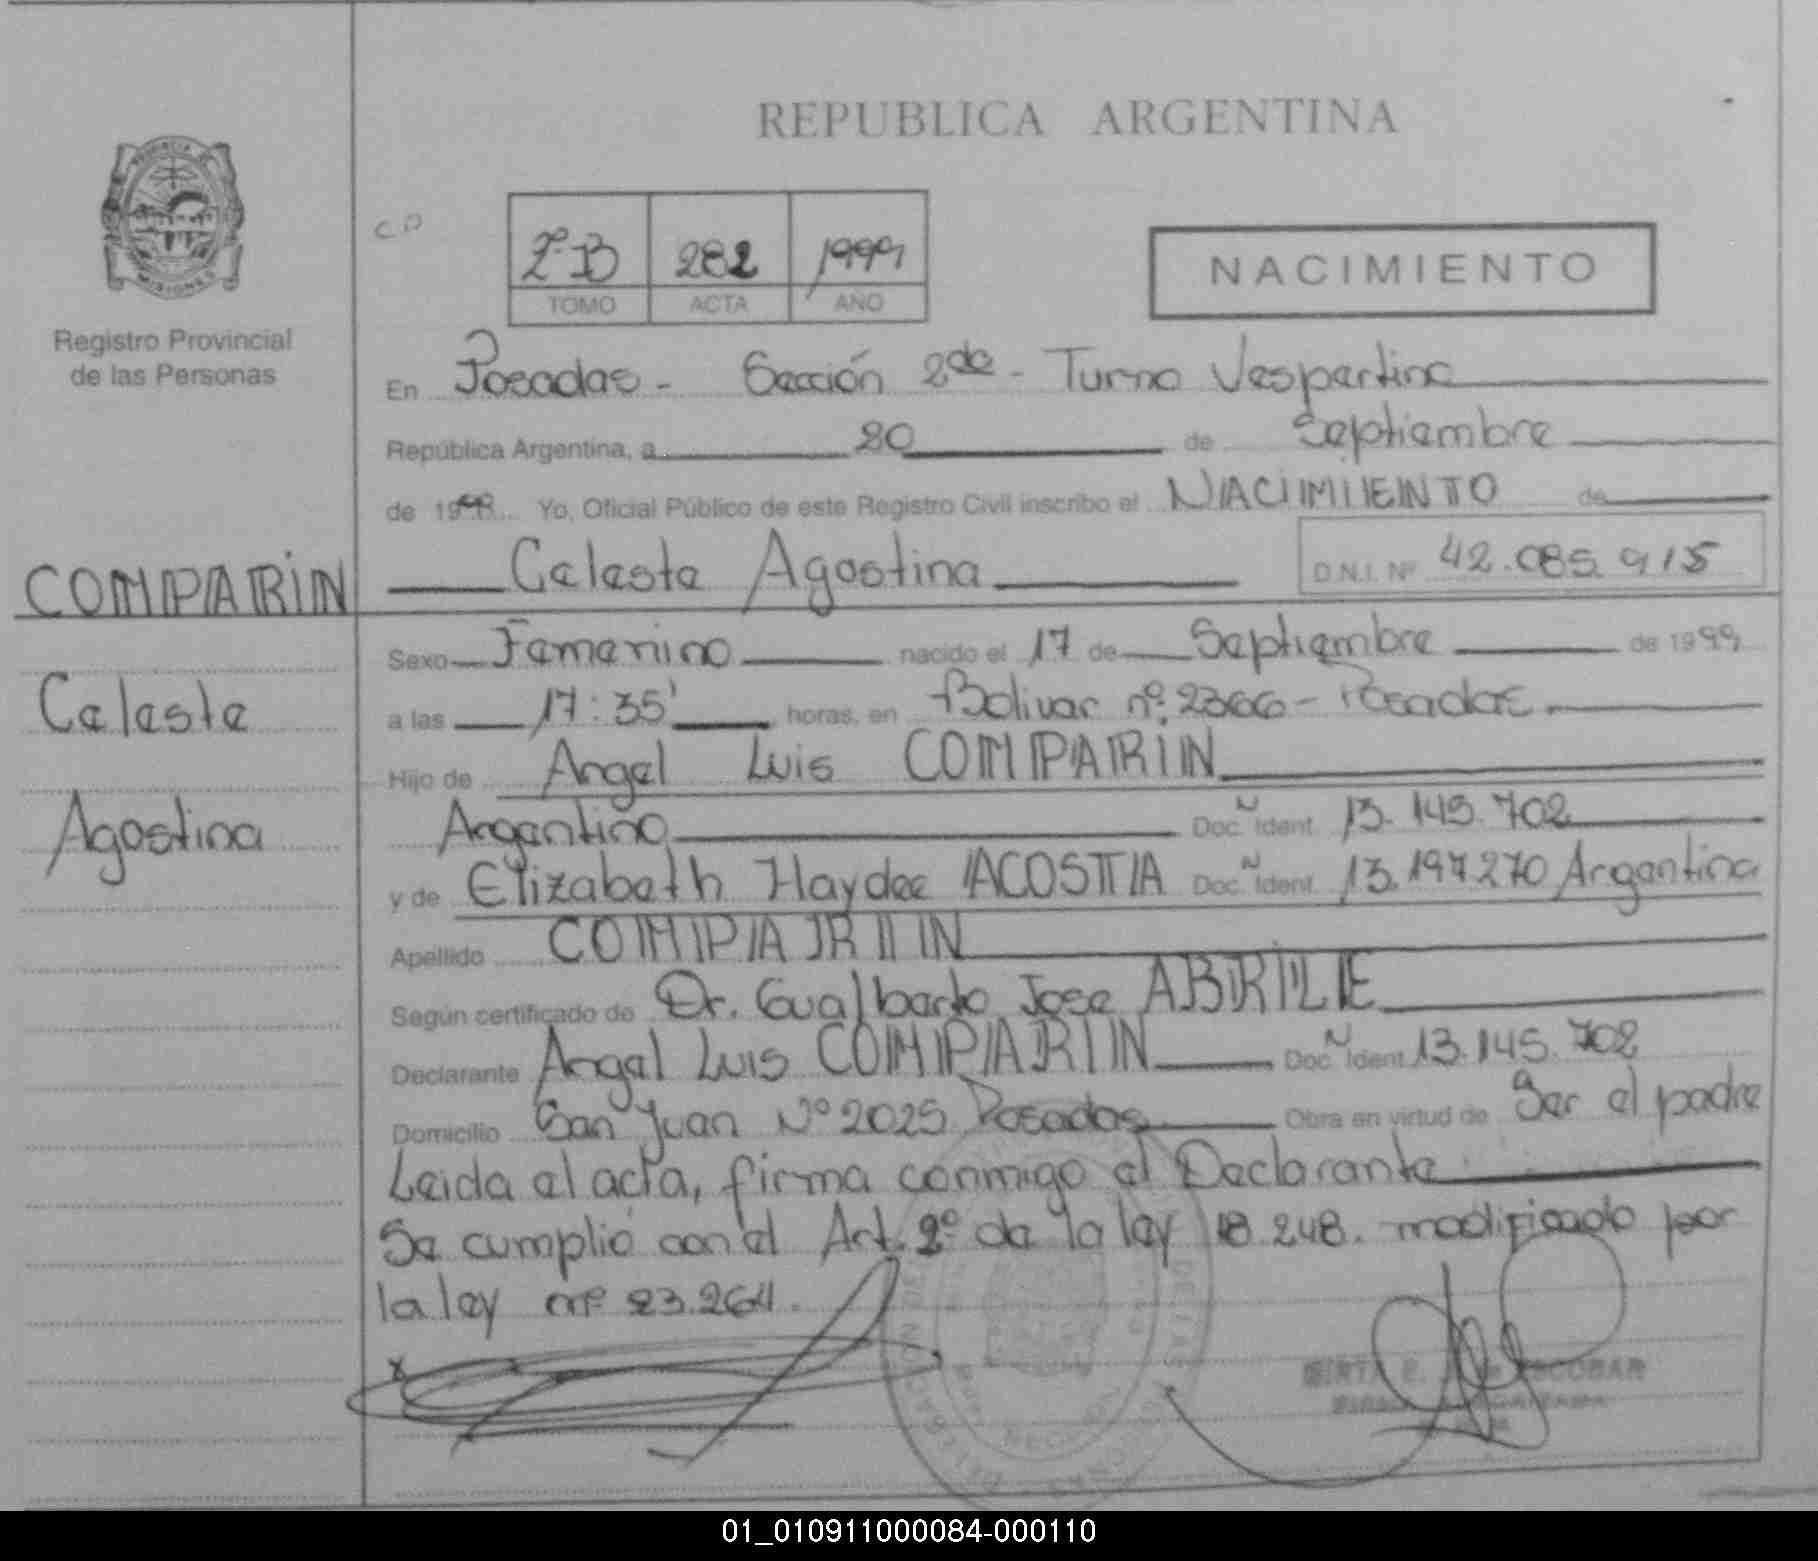 REPUBLICA ARGENTINA
PROVINCIA DE
MISIONES
Registro Provincial
de las Personas
C.D
2º B 282 1999
TOMO ACTA AÑO
NACIMIENTO
En Posadas - Sección 2da - Turno Vespertino
República Argentina, a 20 de Septiembre
de 1999 Yo, Oficial Público de este Registro Civil inscribo el NACIMIENTO de
COMPARIN
Celeste Agostina D.N.I. Nº 42.085.915
Sexo Femenino nacido el 17 de Septiembre de 1999
Celeste
a las 17:35' horas, en Bolivar nº 2366 - Posadas.
Hijo de Angel Luis COMPARIN
Agostina
Argentino Doc. Ident. 13.145.702
y de Elizabeth Haydee ACOSTA Doc. Ident. 13.197.270 Argentina
Apellido COMPARIN
Según certificado de Dr. Gualberto Jose ABRILE
Declarante Angel Luis COMPARIN Doc. Ident. 13.145.702
Domicilio San Juan Nº 2025 Posadas Obra en virtud de Ser el padre
Leida el acta, firma conmigo el Declarante
Se cumplió con el Art. 2º de la ley 18.248. modificado por
la ley nº 23.264.
X
ESCOBAR
01_010911000084-000110